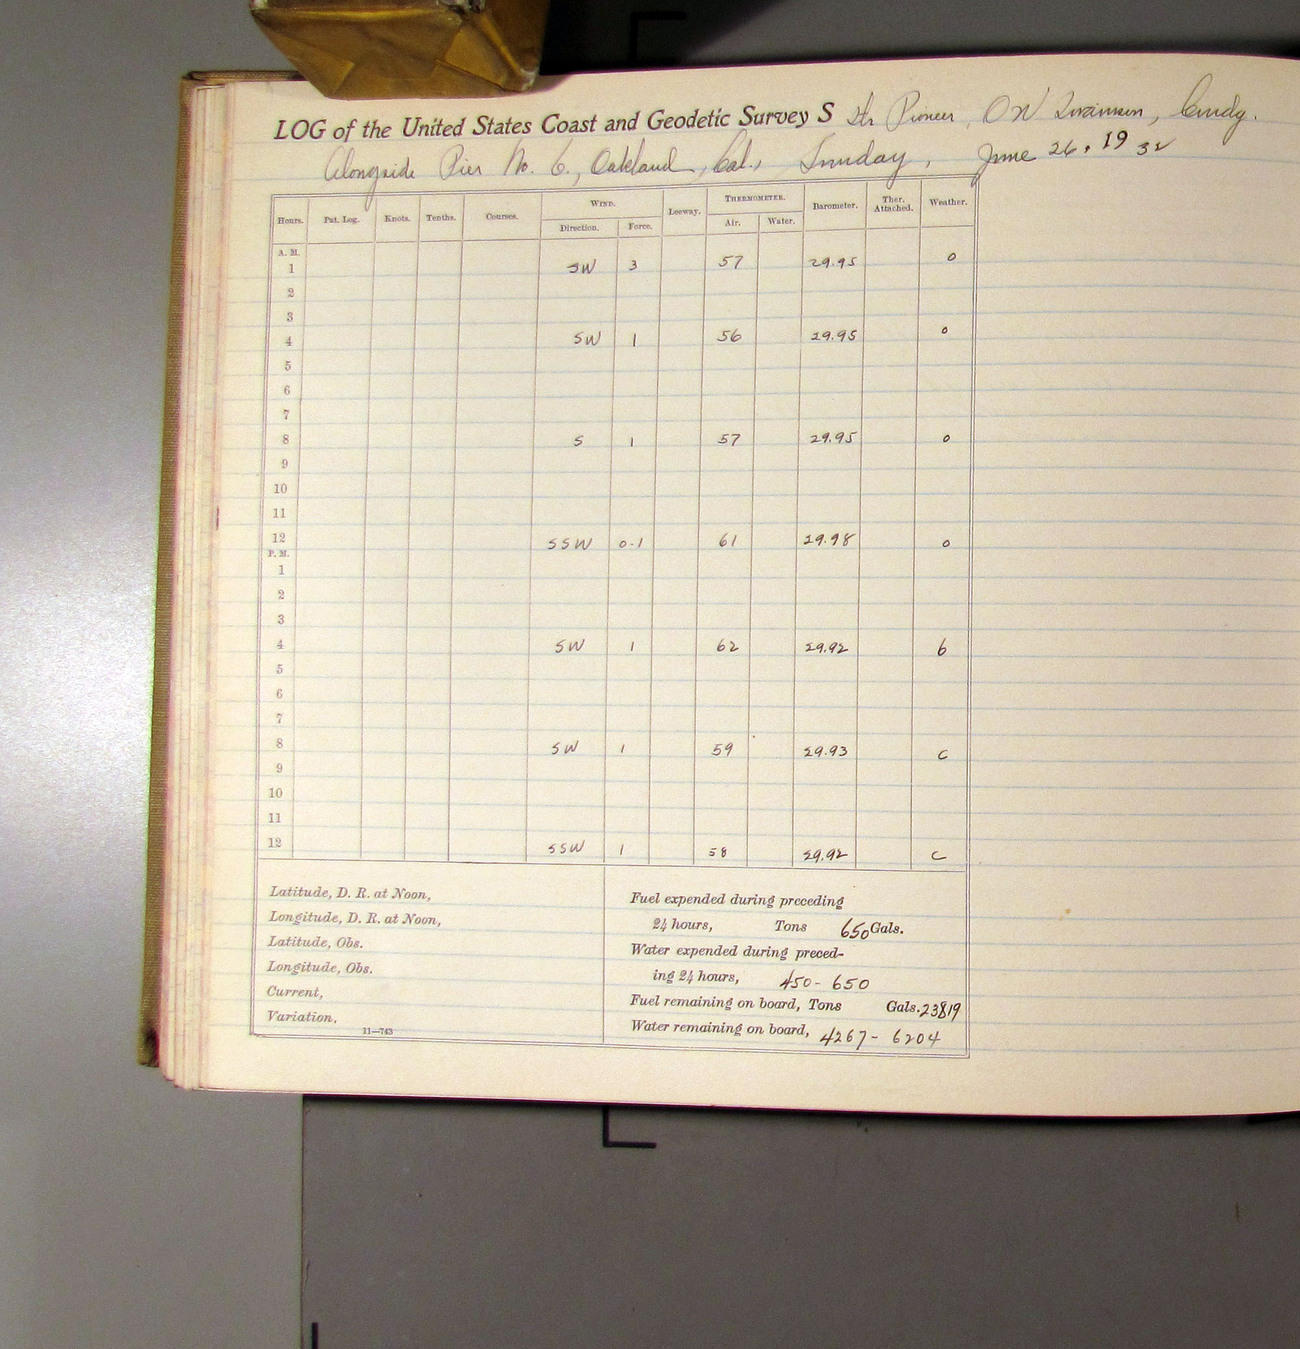 LOG of the United States Coast and Geodetic Survey S Str Pioneer, O W Swainson, Comdg.
Alongside Pier No. 6, Oakland, Cal., Sunday, June 26, 1932
Hours. Pat. Log. Knots. Tenths. Courses. WIND. Leeway. THERMOMETER. Barometer. Ther. Attached. Weather.
Direction. Force. Air. Water.
A. M.
1 SW 3 57 29.95 o
2
3
4 SW 1 56 29.95 o
5
6
7
8 S 1 57 29.95 o
9
10
11
12 SSW 0-1 61 29.98 o
P. M.
1
2
3
4 SW 1 62 29.92 b
5
6
7
8 SW 1 59 29.93 c
9
10
11
12 SSW 1 58 29.92 c
Latitude, D. R. at Noon,
Longitude, D. R. at Noon,
Latitude, Obs.
Longitude, Obs.
Current,
Variation,
11—743
Fuel expended during preceding
24 hours, Tons 650 Gals.
Water expended during preced-
ing 24 hours, 450 - 650
Fuel remaining on board, Tons Gals. 23819
Water remaining on board, 4267 - 6204